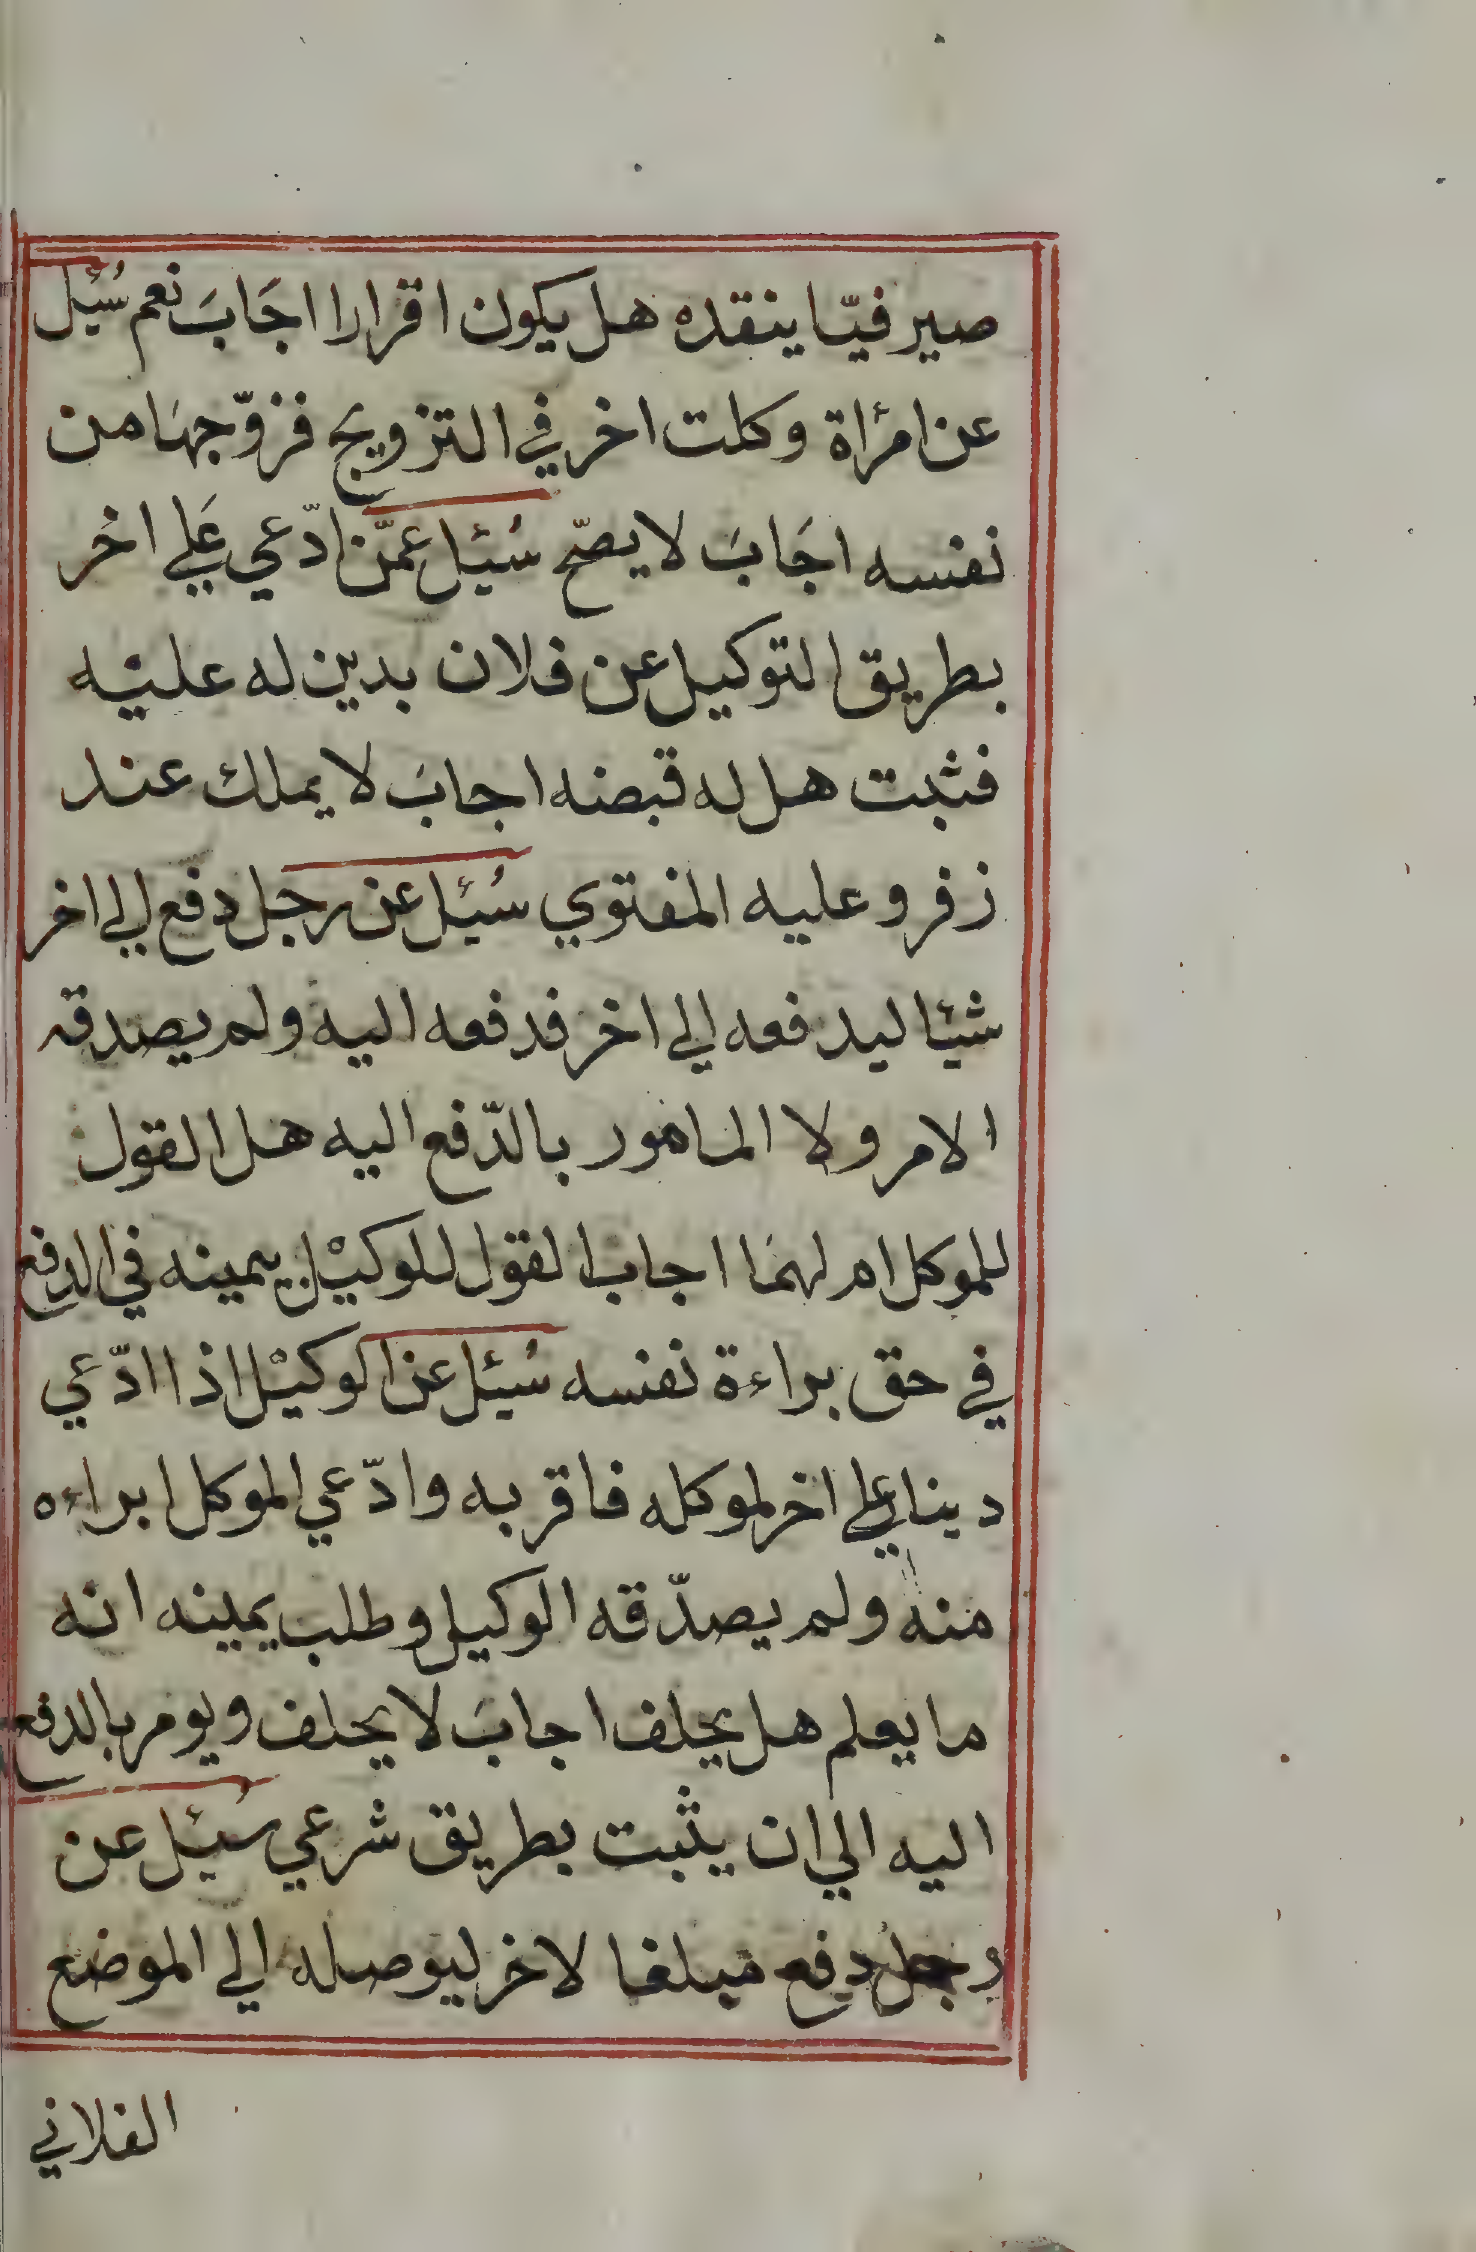 صيرفيّا ينقده هل يكون اقرارا اجَابَ نعم سُئِل
عن امرٔاة وكلت اخر في التزويج فزوّجهَا من
نفسه اجَابَ لا يصحّ سُئِل عمّن ادّعي عَلي اخَر
بطريق التوكيل عن فلان بدين له عليْه
فثبت هل له قبضه اجابَ لا يملك عند
زفر وعليه الفتوي سُئِل عن رجل دفع الي اخر
شيئا ليدفعه الي اخر فدفعه اليه ولم يصدقه
الامر ولا المامور بالدّفع اليه هل القول
للموكل ام لهمَا اجاب القول للوكيْل بيمينه في الدفع
في حق براءة نفسه سُئِل عن الوكيْل اذا ادّعي
دينا علي اخر لموكله فاقر به وادّعي الموكل ابراءه
منه ولم يصدّقه الوكيل وطلب يمينه انه
ما يعلم هل يحلف اجابَ لا يحلف ويومر بالدفع
اليه الي ان يثبت بطريق شرعي سُئِل عن
رجل دفع مبلغا لاخر ليوصله الي الموضع
الفلاني